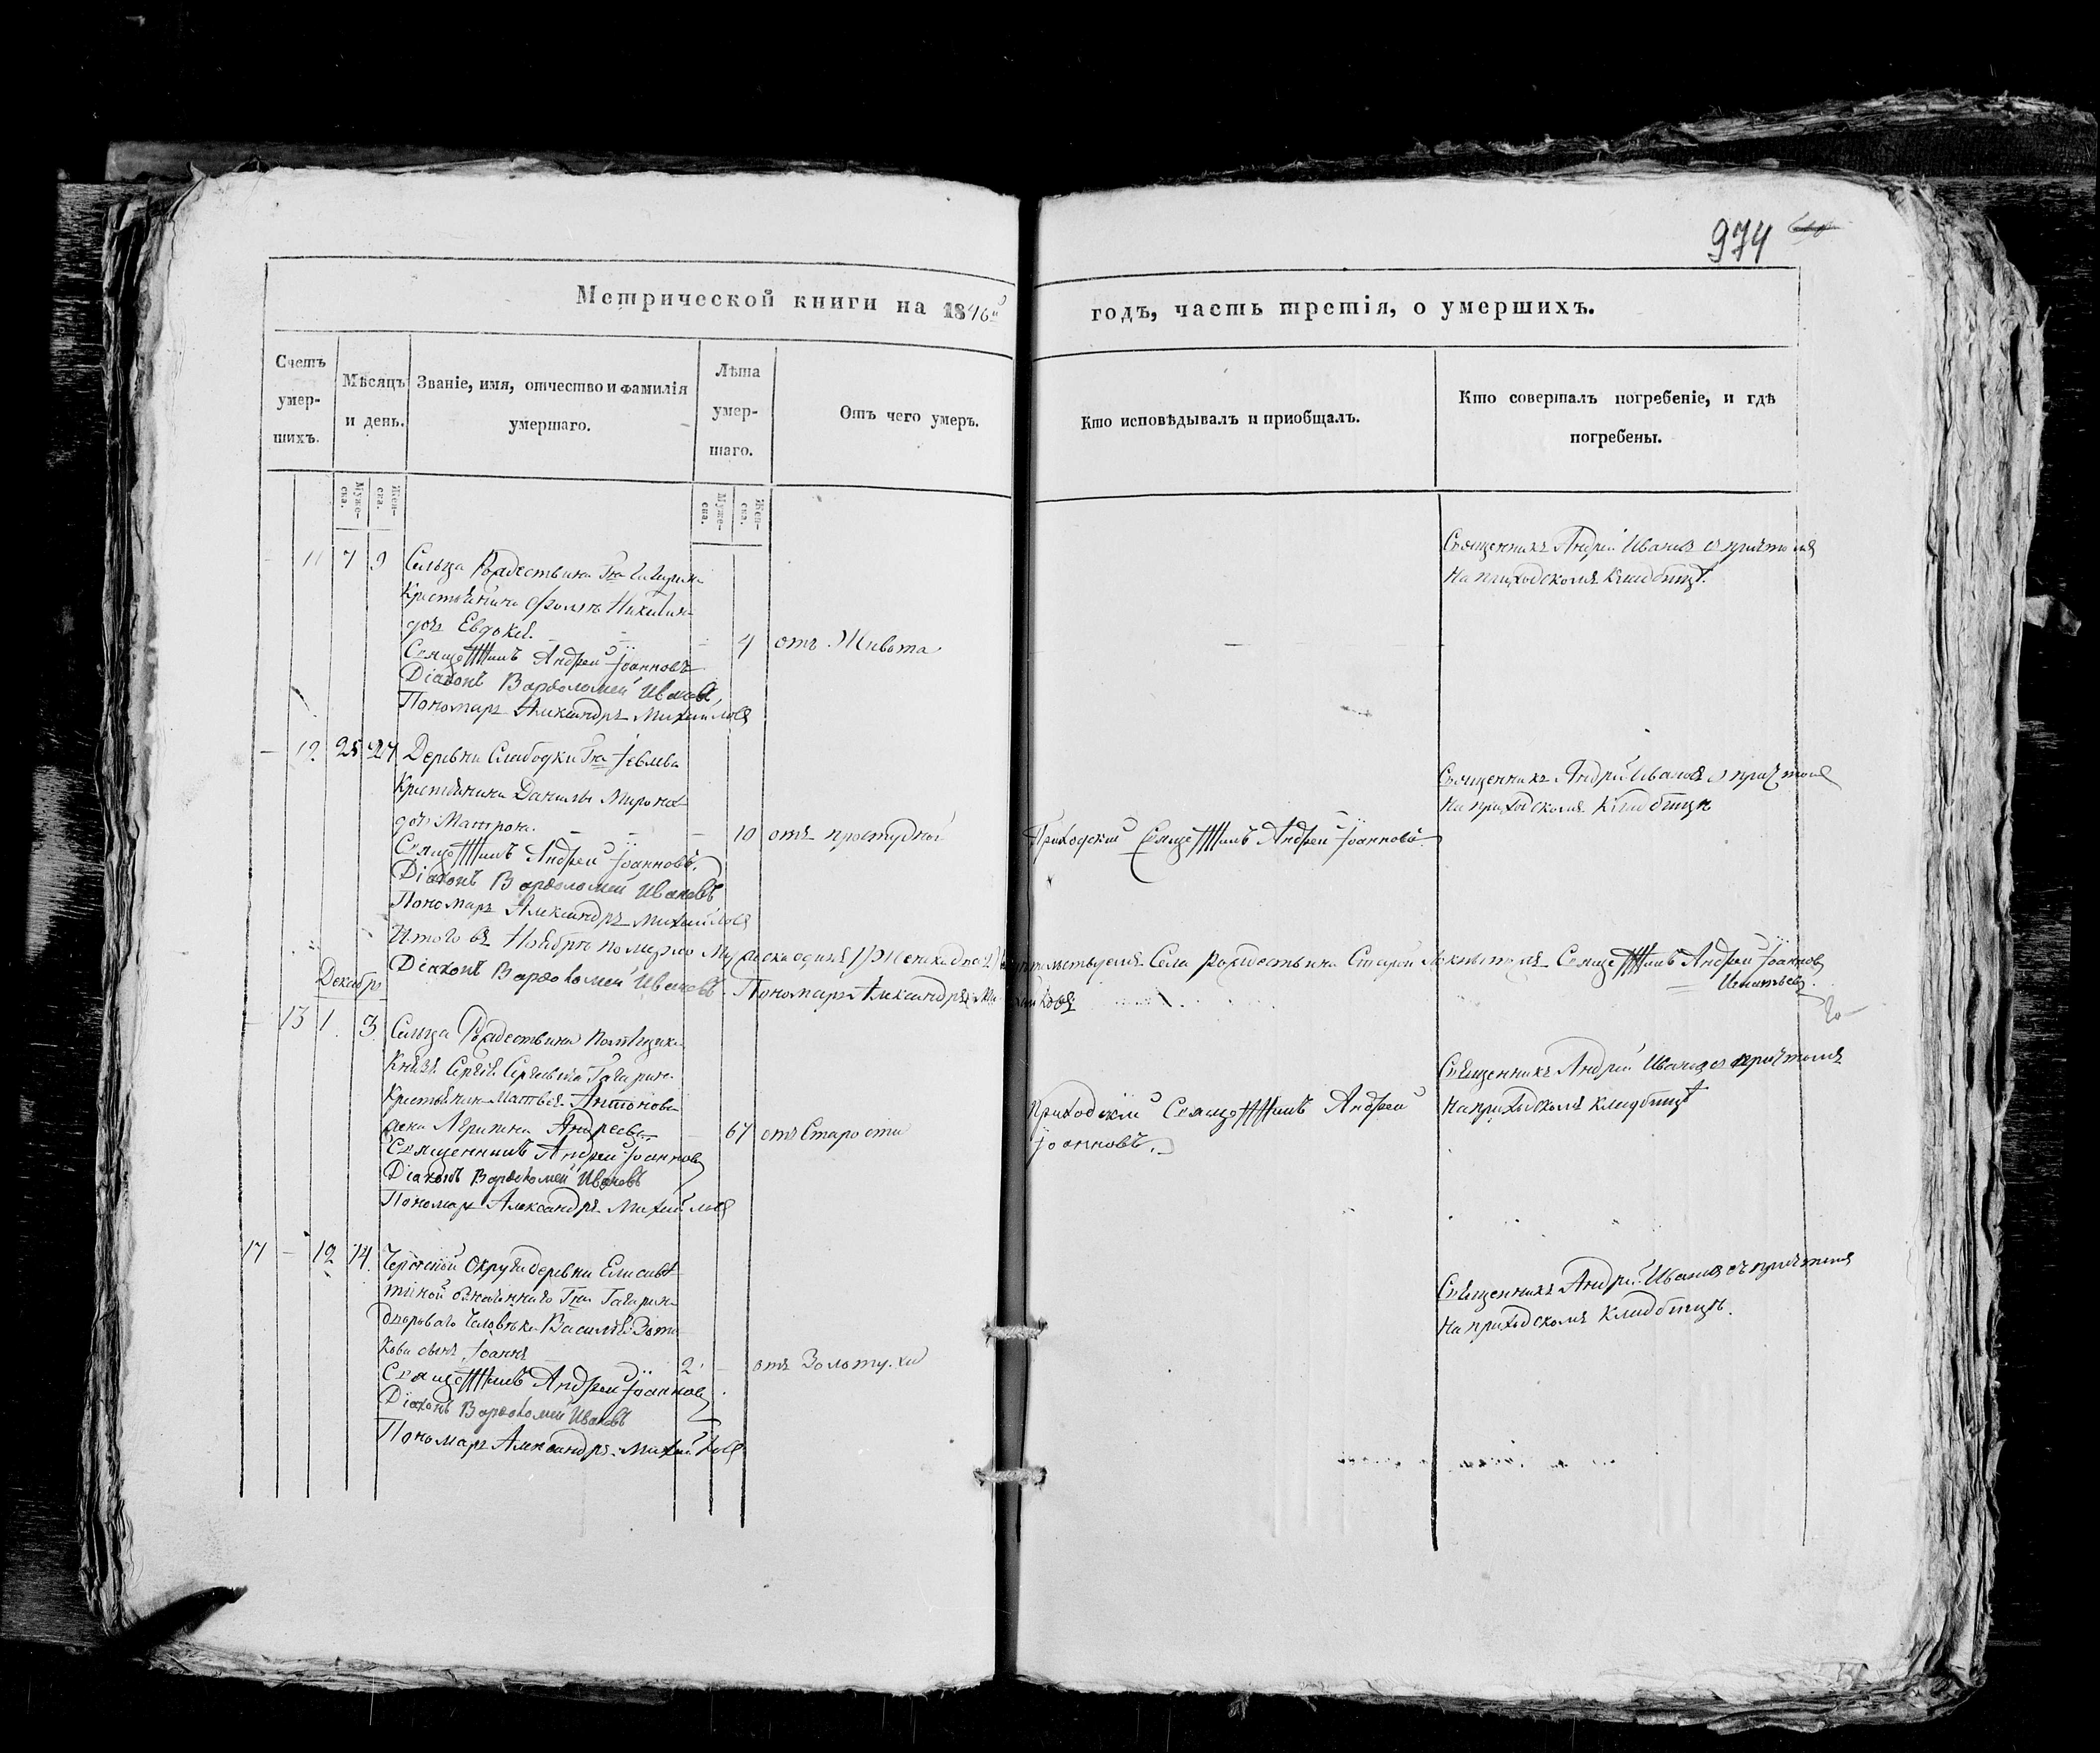 974
Метрической книги на 1846й годъ, часть третія, о умершихъ.
Счетъ умер-шихъ.
Мѣсяцъ и день.
Званіе, имя, отчество и фамилія умершаго.
Лѣта умер-шаго.
Отъ чего умеръ.
Кто исповѣдывалъ и приобщалъ.
Кто совершалъ погребеніе, и гдѣ погребены.
Муже-ска.
Жен-ска.
Муже-ска.
Жен-ска.
11 7 9 Сельца Рождествина Гна Гагарина
Крестьянина
дочь Евдокія.
4 отъ Живота
Священникъ Андрей Ивановъ съ причтомъ
на приходскомъ кладбищѣ.
Священникъ Андрей Іоанновъ
Діаконъ Варѳоломей Ивановъ
Пономарь Александръ Михайловъ
12 25 27 Деревни Слабодки Гна
Крестьянина Данилы Миронова
дочь Матрона.
10 отъ простудной
Приходский Священникъ Андрей Іоанновъ
Священникъ Андрей Ивановъ с причтомъ
на приходскомъ кладбищѣ
Священникъ Андрей Іоанновъ.
Діаконъ Варѳоломей Ивановъ
Пономарь Александръ Михайловъ
Итого въ Ноябрѣ померло Мужеска одинъ 1 Женска две 2 Села Рождествина Священникъ Андрей Іоанновъ
Діаконъ Варѳоломей Ивановъ Пономарь Александръ Михайловъ
Декабрь
13 1 3 Сельца Рождествина Помѣщика
Князя Сергія Сергѣевича Гагарина
Крестьянина Матвея Антонова
жена Андреева
67 отъ Старости
Приходскій Священникъ Андрей
Іоанновъ.
Священникъ Андрей Ивановъ с причтомъ
на приходскомъ кладбищѣ
Священникъ Андрей Іоанновъ
Діаконъ Варѳоломей Ивановъ
Пономарь Александръ Михайловъ
17 12 14 округи деревни
Гна Гагарина
дворова человѣка
сынъ Іоаннъ
2 отъ Золотухи
Священникъ Андрей Ивановъ съ причтомъ
на приходскомъ кладбищѣ.
Священникъ Андрей Іоанновъ
Діаконъ Варѳоломей Ивановъ
Пономарь Александръ Михайловъ